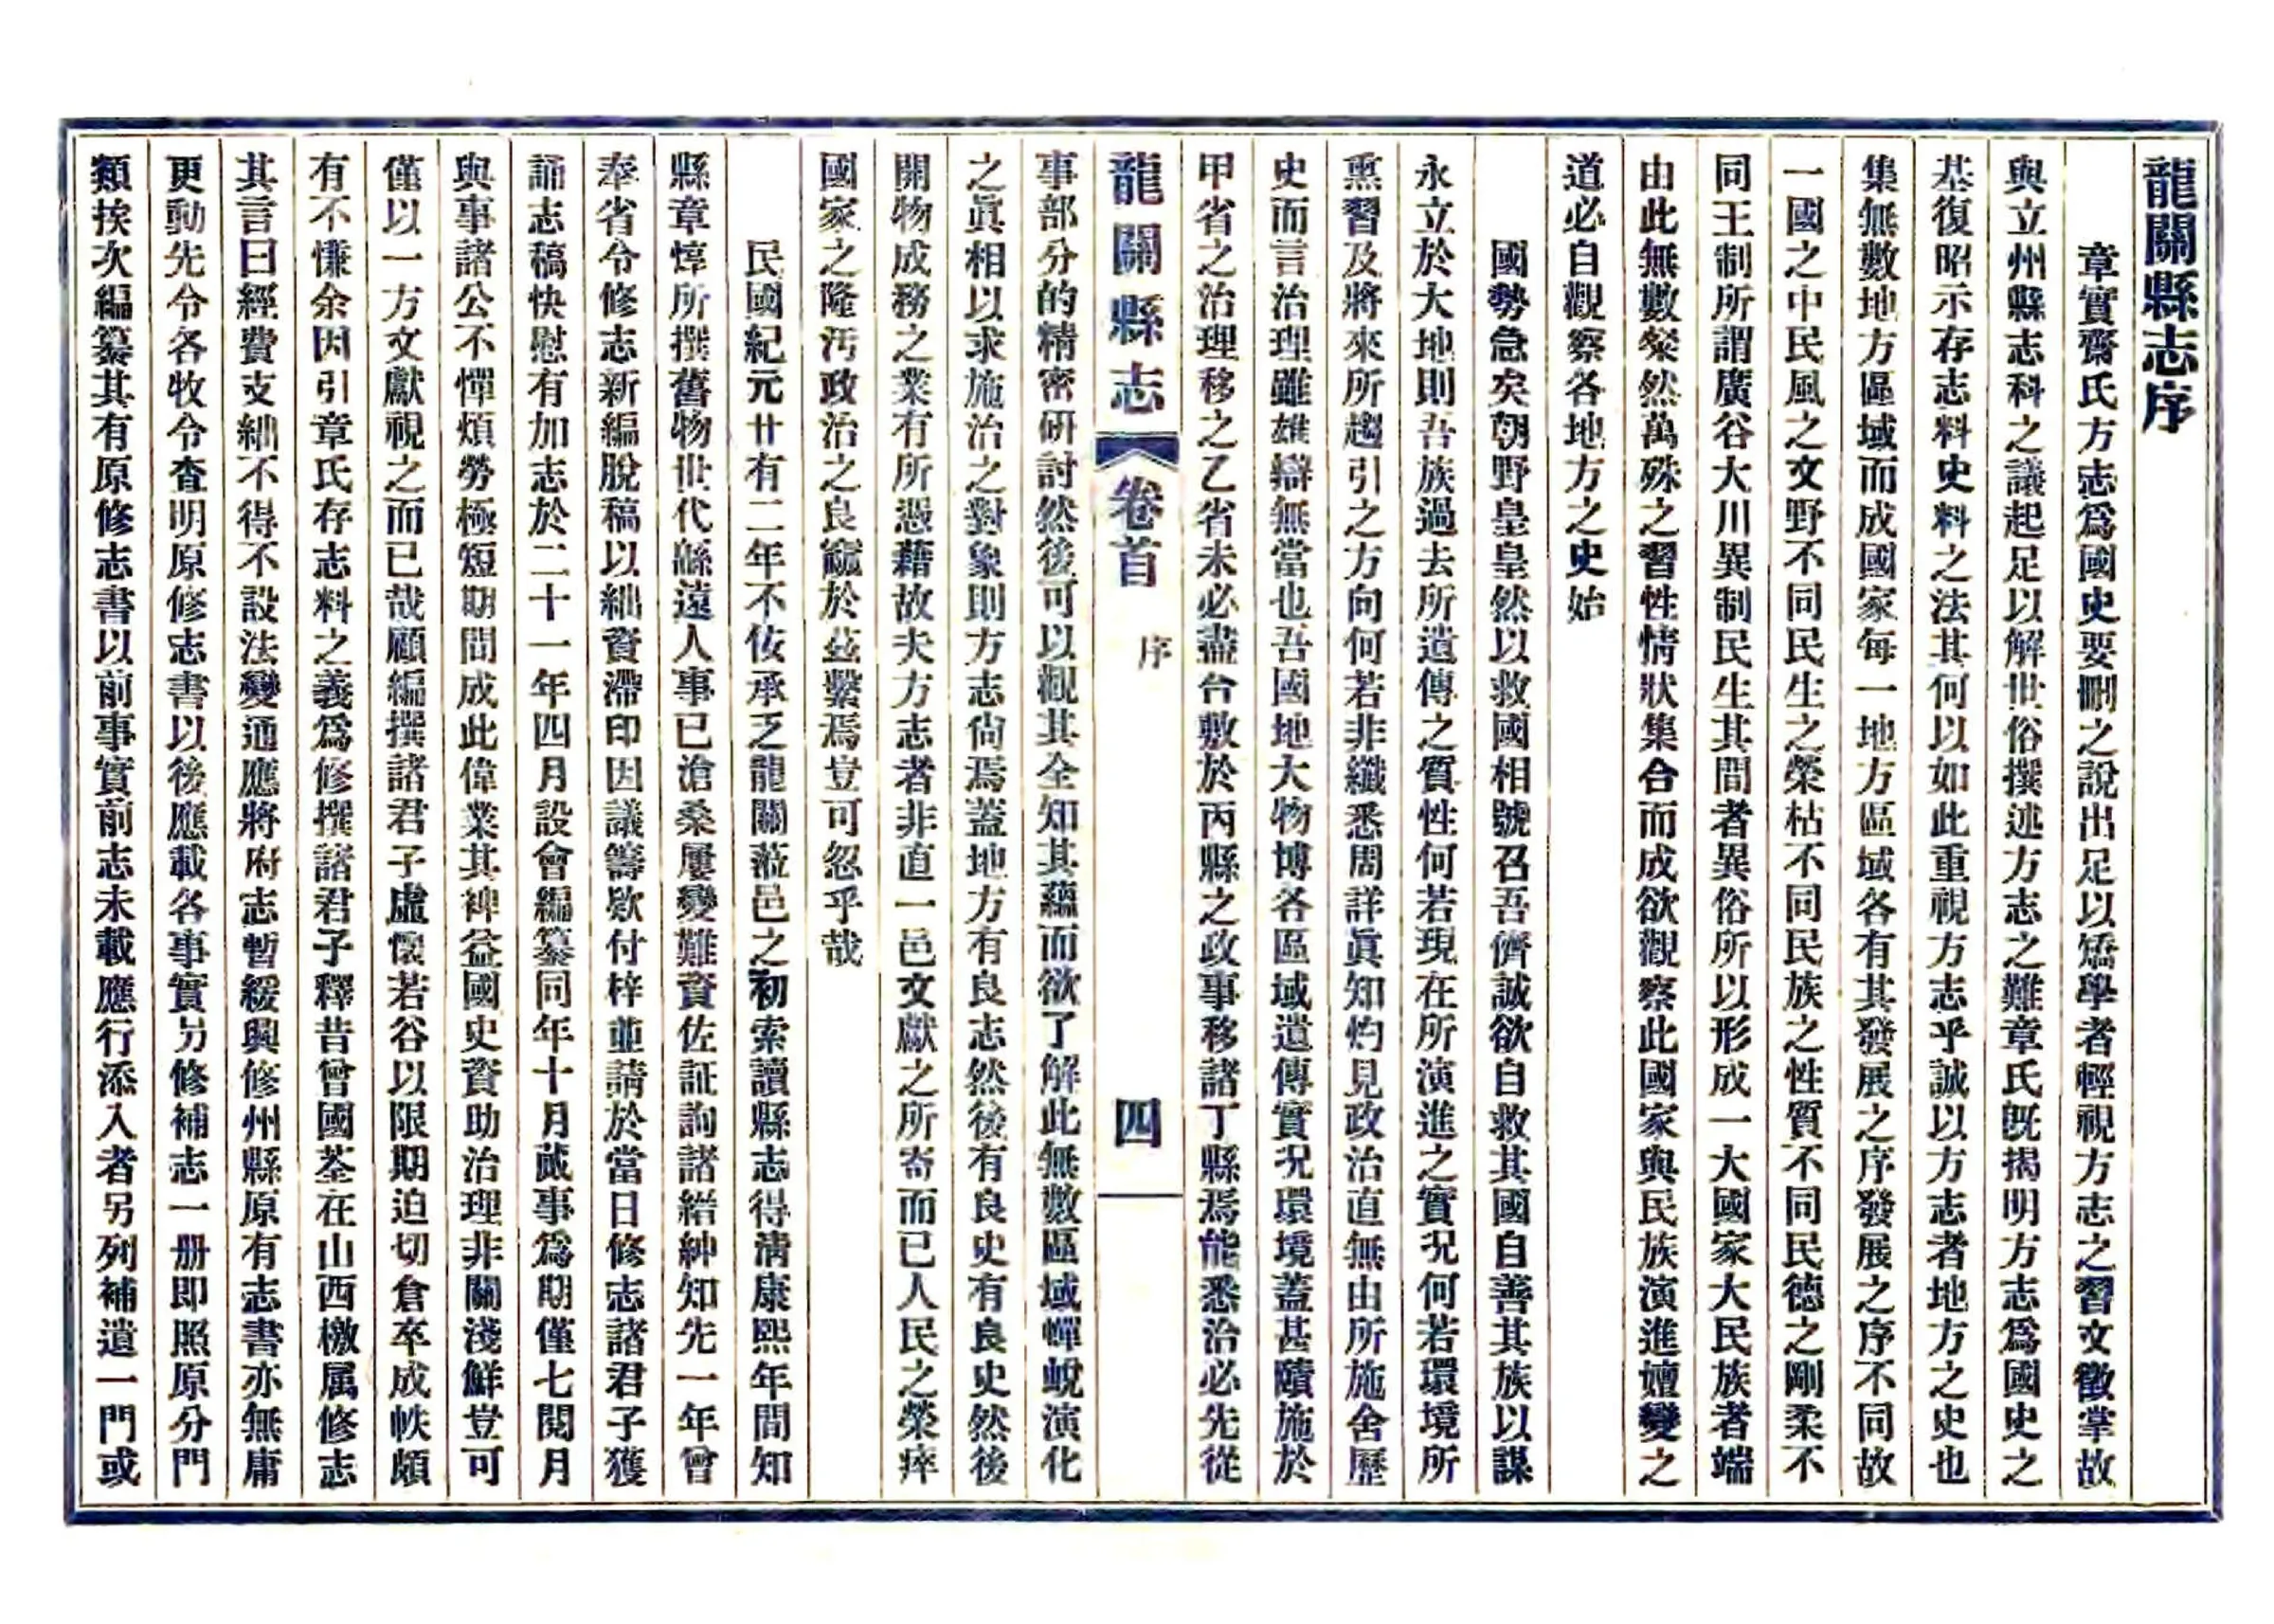 龍關縣志序
章實齋氏方志爲國史要刪之說出足以矯學者輕視方志之習文徵掌故
與立州縣志科之議起足以解世俗撰述方志之難章氏既揭明方志爲國史之
基復昭示存志料史料之法其何以如此重視方志乎誠以方志者地方之史也
集無數地方區域而成國家每一地方區域各有其發展之序發展之序不同故
一國之中民風之文野不同民生之榮枯不同民族之性質不同民德之剛柔不
同王制所謂廣谷大川異制民生其間者異俗所以形成一大國家大民族者端
由此無數粲然萬殊之習性情狀集合而成欲觀察此國家與民族演進嬗變之
道必自觀察各地方之史始
國勢急矣朝野皇皇然以救國相號召吾儕誠欲自救其國自善其族以謀
永立於大地則吾族過去所遺傳之質性何若現在所演進之實况何若環境所
熏習及將來所趨引之方向何若非纖悉周詳眞知灼見政治直無由所施舍歷
史而言治理雖雄辯無當也吾國地大物博各區域遺傳實况環境蓋甚賾施於
甲省之治理移之乙省未必盡合敷於丙縣之政事移諸丁縣焉能悉治必先從
龍關縣志 卷首 序 四
事部分的精密研討然後可以觀其全知其蘊而欲了解此無數區域蟬蛻演化
之眞相以求施治之對象則方志尙焉蓋地方有良志然後有良史有良史然後
開物成務之業有所憑藉故夫方志者非直一邑文獻之所寄而已人民之榮瘁
國家之隆污政治之良窳於茲繫焉豈可忽乎哉
民國紀元廿有二年不佞承乏龍關蒞邑之初索讀縣志得淸康熙年間知
縣章焞所撰舊物世代緜遠人事已滄桑屢變難資佐証詢諸縉紳知先一年曾
奉省令修志新編脫稿以絀資滯印因議籌欵付梓並請於當日修志諸君子獲
誦志稿快慰有加志於二十一年四月設會編纂同年十月蕆事爲期僅七閱月
與事諸公不憚煩勞極短期間成此偉業其裨益國史資助治理非關淺鮮豈可
僅以一方文獻視之而已哉顧編撰諸君子虛懷若谷以限期迫切倉卒成帙頗
有不慊余因引章氏存志料之義爲修撰諸君子釋昔曾國荃在山西檄属修志
其言曰經費支絀不得不設法變通應將府志暫緩興修州縣原有志書亦無庸
更動先令各牧令查明原修志書以後應載各事實另修補志一册即照原分門
類挨次編纂其有原修志書以前事實前志未載應行添入者另列補遺一門或